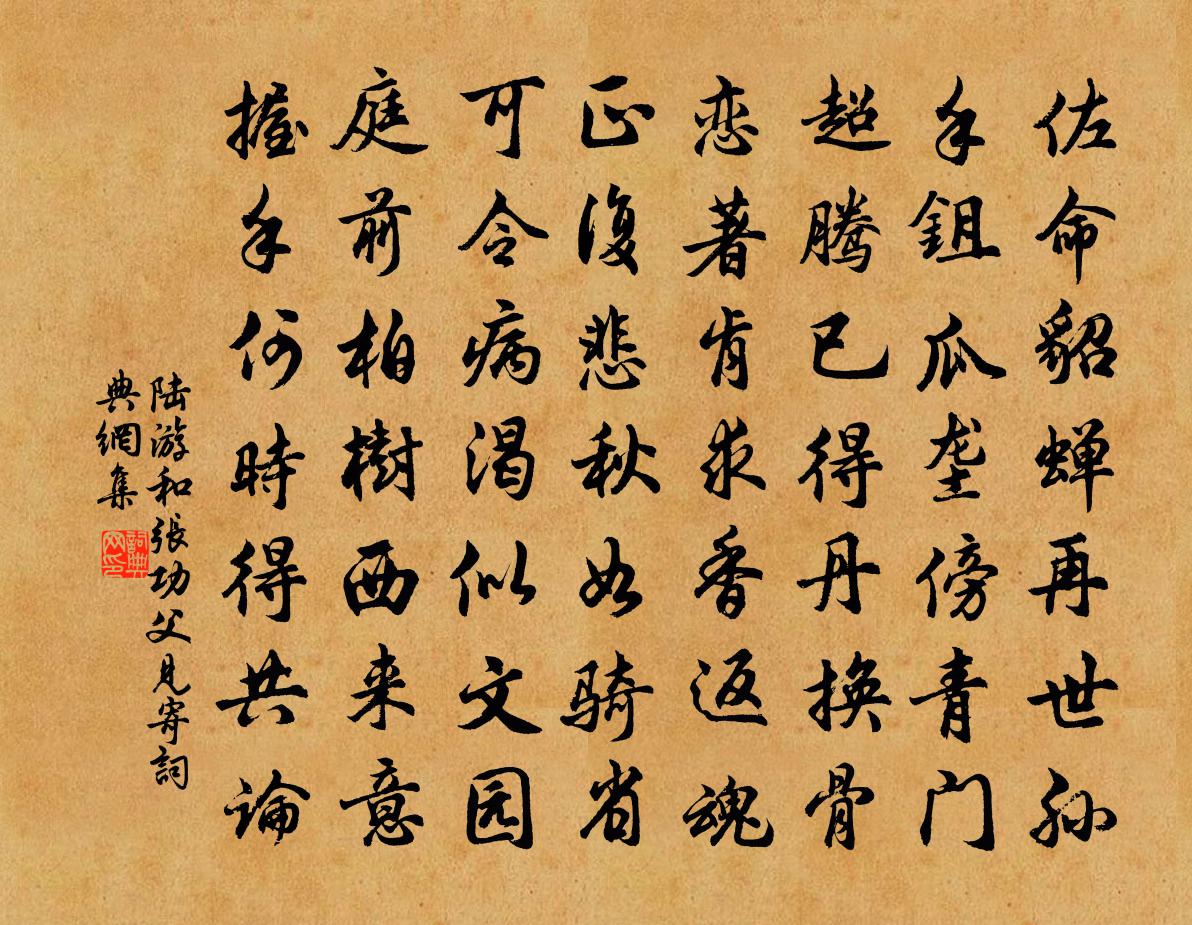 佐命貂蝉再世孙
手鉏瓜垄傍青门
超腾已得丹换骨
恋著肯求香返魂
正復悲秋如骑省
可令病渴似文园
庭前柏樹西来意
握手何時得共論
陆游和張功父見寄詞
典網集
詞典网印